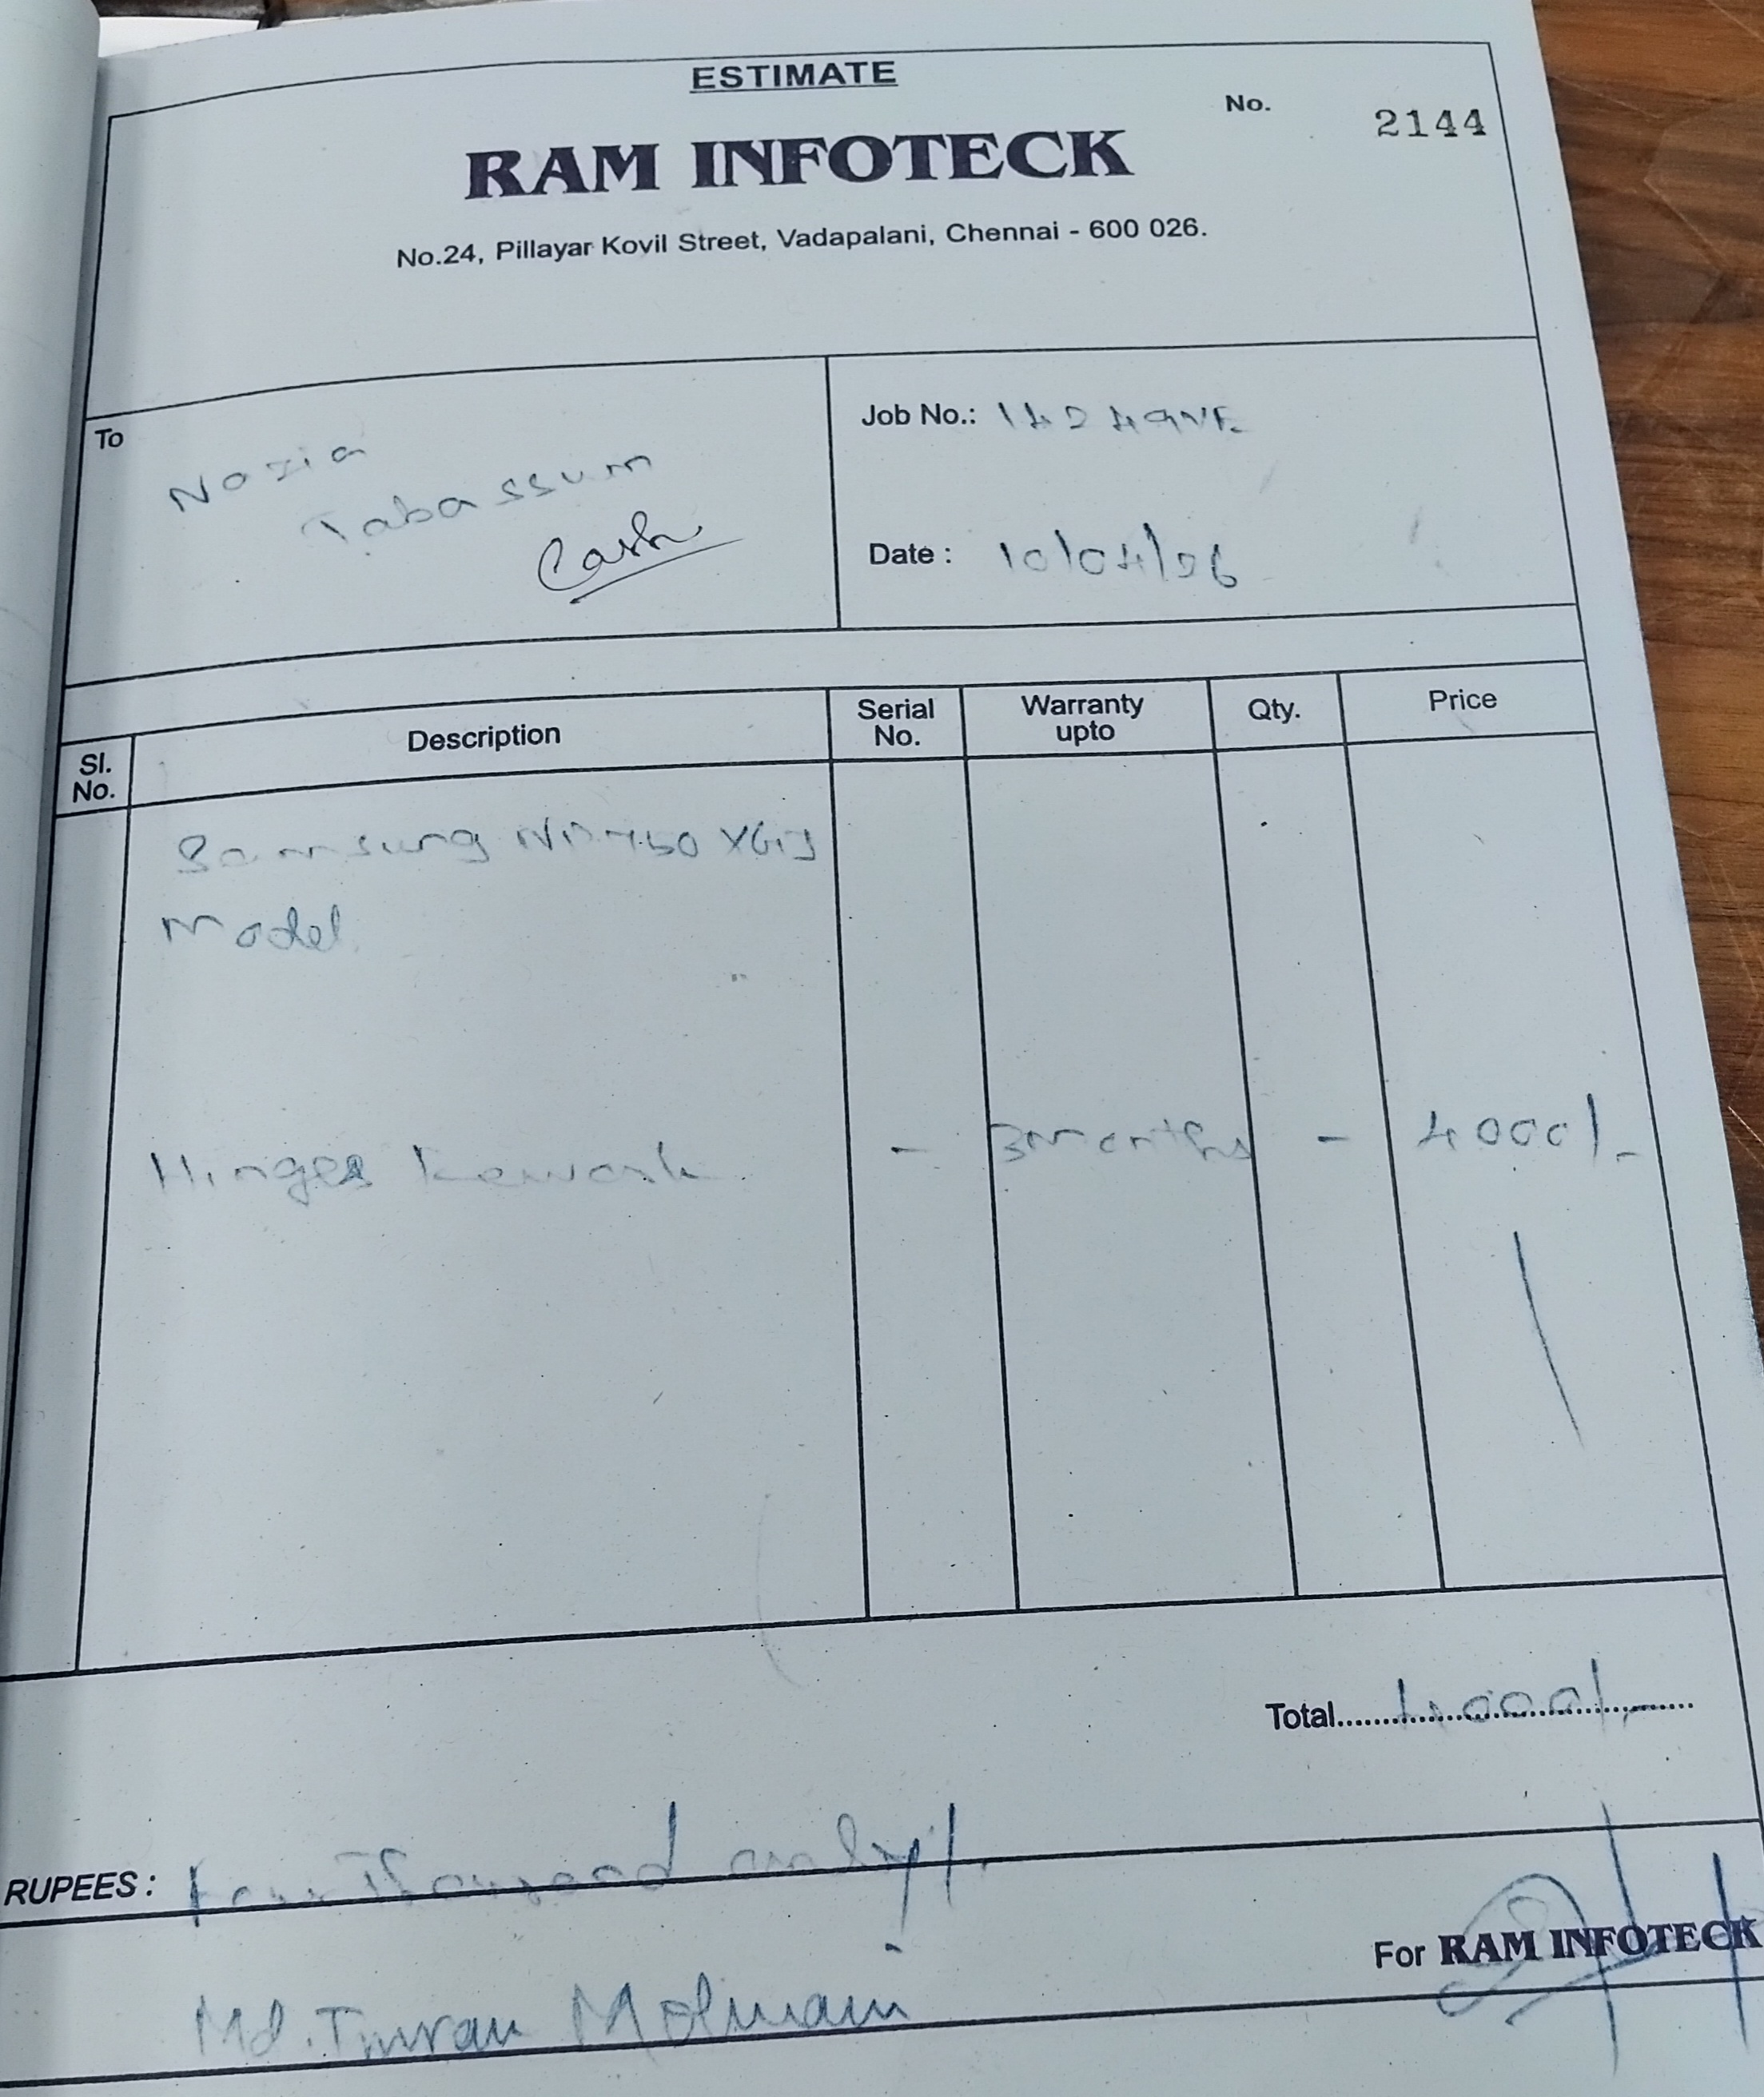 ESTIMATE
No. 2144
RAM INFOTECK
No.24, Pillayar Kovil Street, Vadapalani, Chennai - 600 026.
To
Nozia
Tabassum
Cash
Job No.:
Date : 10/04/26
Sl. No. Description Serial No. Warranty upto Qty. Price
Samsung
Model
Hinges Rework - 3months - 4000/-
Total 4000/-
RUPEES : four Thousand only/.
For RAM INFOTECK
Md. Imran